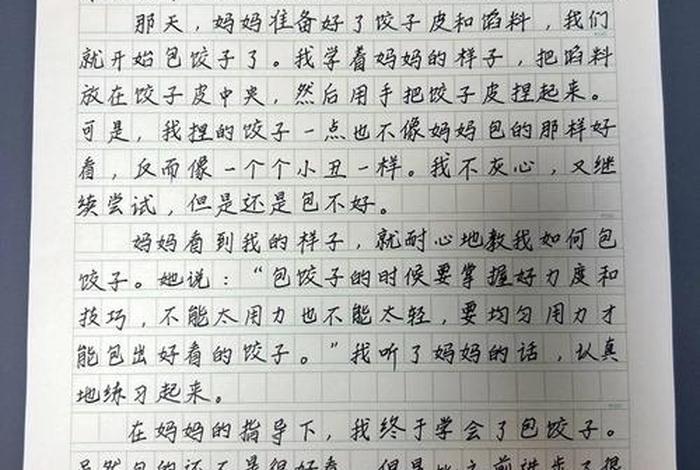 那天，妈妈准备好了饺子皮和馅料，我们
就开始包饺子了。我学着妈妈的样子，把馅料
放在饺子皮中央，然后用手把饺子皮捏起来。
可是，我捏的饺子一点也不像妈妈包的那样好
看，反而像一个个小丑一样。我不灰心，又继
续尝试，但是还是包不好。
妈妈看到我的样子，就耐心地教我如何包
饺子。她说：“包饺子的时候要掌握好力度和
技巧，不能太用力也不能太轻，要均匀用力才
能包出好看的饺子。”我听了妈妈的话，认真
地练习起来。
在妈妈的指导下，我终于学会了包饺子。
虽然包的还不是很好看，但是比之前进步了很